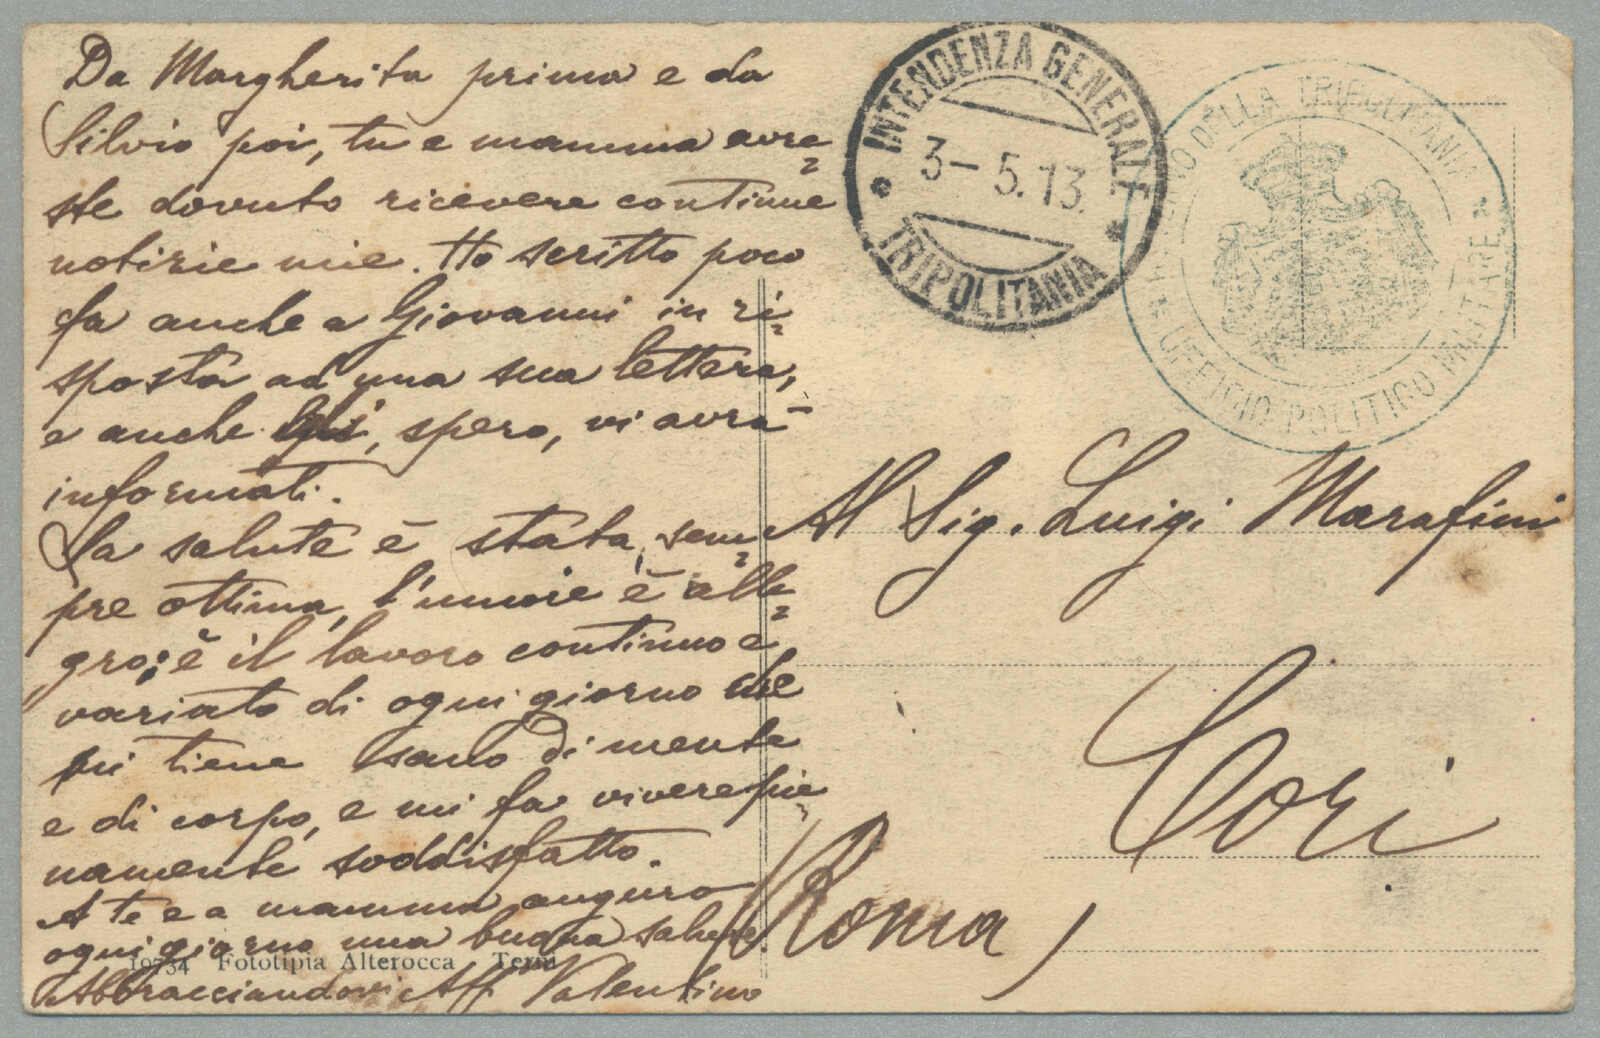 Da Margherita prima e da
Silvio poi, tu e mamma avre=
ste dovuto ricevere continue
notizie mie. Ho scritto poco
fa anche a Giovanni in ri=
sposta ad una sua lettera,
e anche egli, spero, vi avrà
informati.
La salute è stata, sem=
pre ottima, l'umore è alle=
gro; è il lavoro continuo e
variato di ogni giorno che
mi tiene sano di mente
e di corpo, e mi fa vivere pie=
namente soddisfatto.
A te e a mamma auguro
ogni giorno una buona salute.
Abbracciandovi Aff Valentino
10734 Fototipia Alterocca Terni
INTENDENZA GENERALE
3-5.13.
TRIPOLITANIA
DELLA TRIPOLITANIA
UFFICIO POLITICO MILITARE
Al Sig. Luigi Marafini
Cori
(Roma)